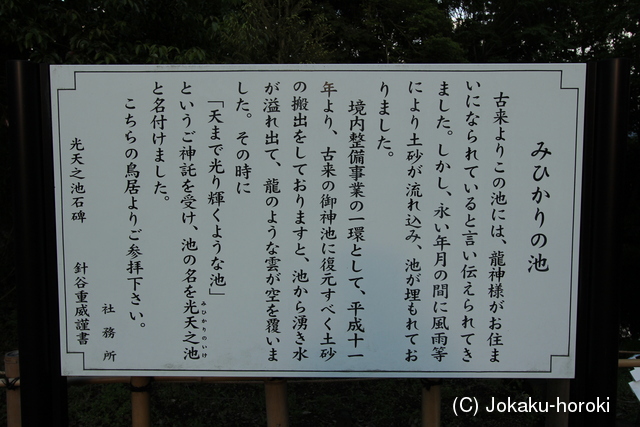 みひかりの池
古来よりこの池には、龍神様がお住ま
いになられていると言い伝えられてき
ました。しかし、永い年月の間に風雨等
により土砂が流れ込み、池が埋もれてお
りました。
境内整備事業の一環として、平成十一
年より、古来の御神池に復元すべく土砂
の搬出をしておりますと、池から湧き水
が溢れ出て、龍のような雲が空を覆いま
した。その時に
「天まで光り輝くような池」
というご神託を受け、池の名を光天之池
みひかりのいけ
と名付けました。
こちらの鳥居よりご参拝下さい。
社務所
光天之池石碑 針谷重威謹書
(C) Jokaku-horoki